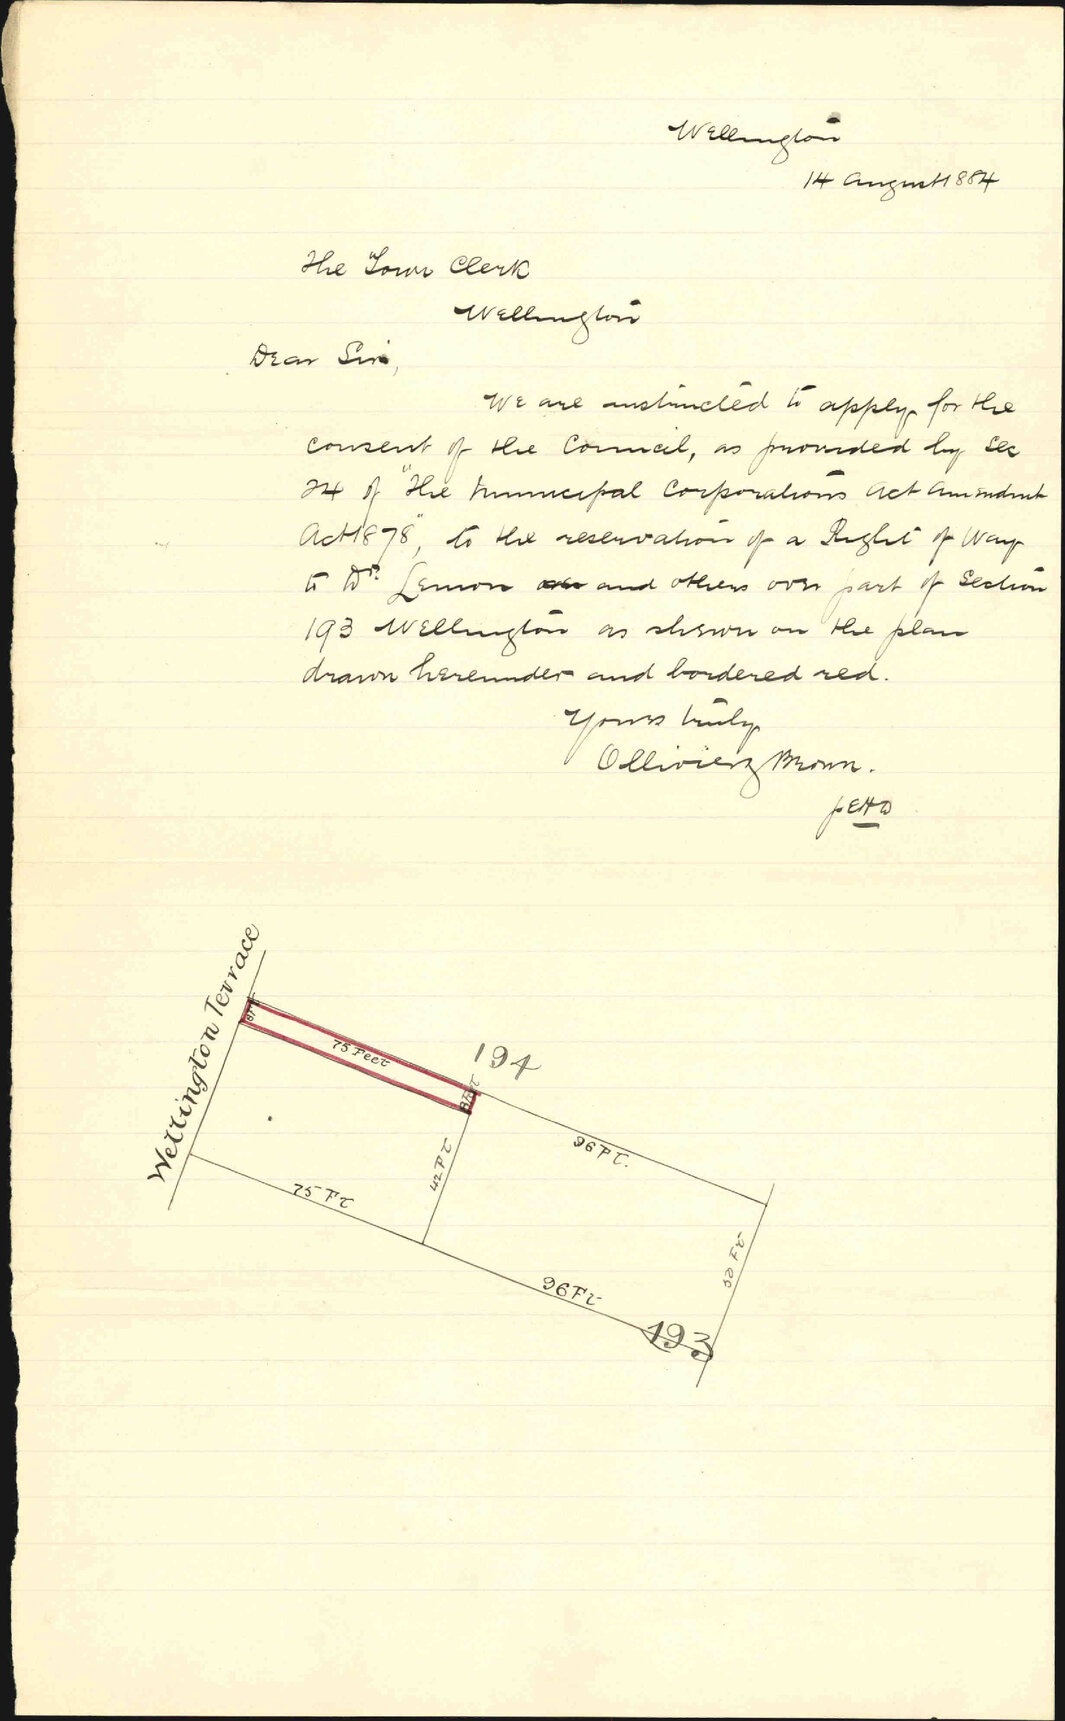 Wellington
14 August 1884
The Town Clerk
Wellington
Dear Sir,
We are instructed to apply for the
consent of the Council, as provided by Sec
24 of "The Municipal Corporations Act Amendmt
Act 1878", to the reservation of a Right of Way
to Dr. Lemon and others over part of Section
193 Wellington as shewn on the plan
drawn hereunder and bordered red.
Yours truly
Ollivier & Brown.
p EHD
Wellington Terrace
8 Ft
75 Feet
194
8 Feet
96 Ft.
42 Ft
75 Ft
50 Ft
96 Ft
193